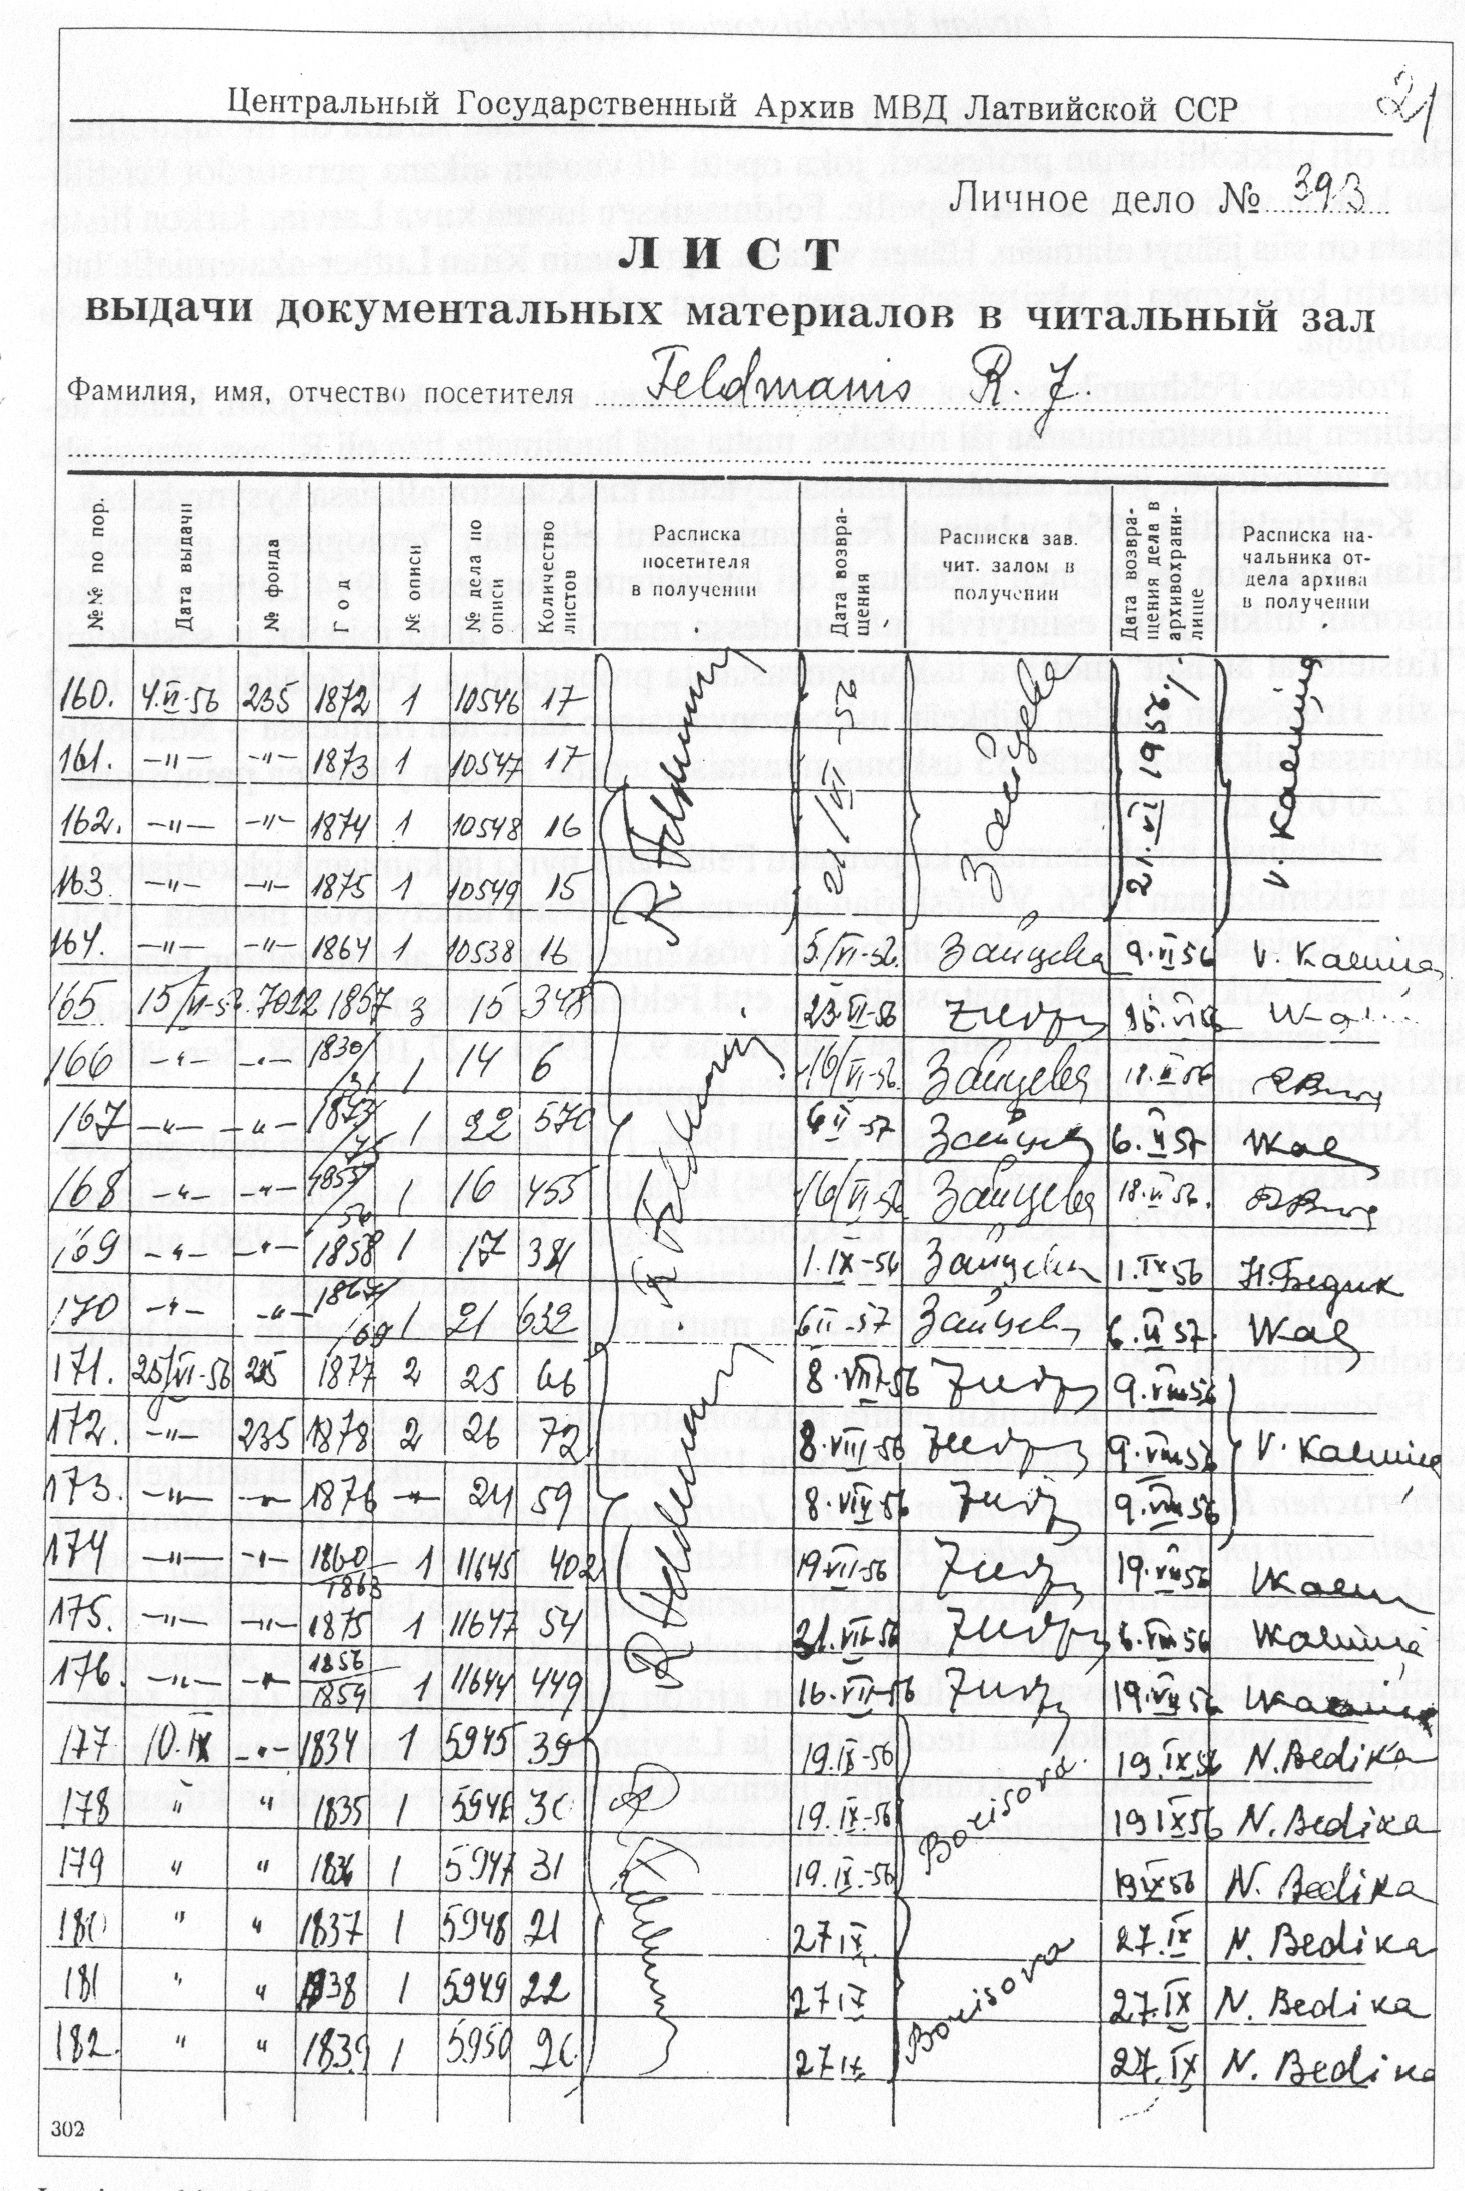 21
Центральный Государственный Архив МВД Латвийской ССР
Личное дело № 393
ЛИСТ
выдачи документальных материалов в читальный зал
Фамилия, имя, отчество посетителя Feldmanis R. J.
№№ по пор. Дата выдачи № фонда Год № описи № дела по описи Количество листов Расписка посетителя в получении Дата возвращения Расписка зав. чит. залом в получении Дата возвращения дела в архивохранилище Расписка начальника отдела архива в получении
160. 4.VI-56 235 1872 1 10546 17 21/VI-56 Зайцева 21.VI 1956 V. Kalniņa
161. -"- -"- 1873 1 10547 17
162. -"- -"- 1874 1 10548 16
163. -"- -"- 1875 1 10549 15
164. -"- -"- 1864 1 10538 16 5/VI-56. Зайцева 9.VI 56 V. Kalniņa
165 15/VI-5 7022 1857 3 15 348 23.VI-56
166 -"- -"- 1830/31 1 14 6 16/VI-56. Зайцева 18.VI 56
167 -"- -"- 1 22 570 6 II-57 Зайцева 6.II 57 VKal
168 -"- -"- 1855/56 1 16 455 16/VI-56 Зайцева 18.VI 56.
169 -"- -"- 1858 1 17 381 1.IX-56 Зайцева 1.IX 56 Н.Бедик
170 -"- -"- 1867/69 1 21 632 6 II-57 Зайцева 6.II 57. VKal
171. 25/VI-56 235 1877 2 25 66 8.VIII-56 9.VIII 56
172. -"- 235 1878 2 26 72 8.VIII-56 9.VIII 56 V. Kalniņa
173. -"- -"- 1876 -"- 24 59 8.VIII-56 9.VIII 56
174 -"- -"- 1860/1863 1 11645 402 19.VII-56 19.VII 56 VKalni
175. -"- -"- 1875 1 11647 54 31.VII-56 6.VIII 56 VKalniņa
176. -"- -"- 1856/1859 1 11644 449 16.VII-56 19.VII 56 VKalniņa
177. 10.IX -"- 1834 1 5945 39 19.IX-56 Borisova 19 IX 56 N. Bedika
178 " " 1835 1 5946 19.IX-56 19 IX 56 N. Bedika
179 " " 1836 1 5947 31 19.IX-56 19 IX 56 N. Bedika
180 " " 1837 1 5948 21 27 IX Borisova 27.IX N. Bedika
181 " " 1838 1 5949 22 27 IX 27.IX N. Bedika
182. " " 1839 1 5950 27 IX 27.IX N. Bedika
302